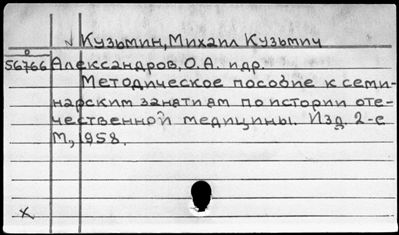 √ Кузьмин, Михаил Кузьмич
56766 Александров, О.А. и др.
Методическое пособие к семи-
нарским занятиям по истории оте-
чественной медицины. Изд. 2-е
М., 1958.
x